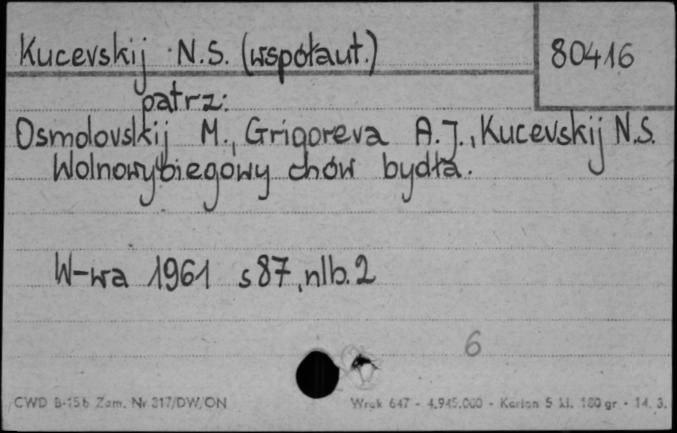 Kucevskij N.S. (współaut.)
80416
patrz:
Osmolovskij M., Grigoreva A.J., Kucevskij N.S.
Wolnowybiegowy chów bydła.
W-wa 1961 s 87, nlb. 2
6
CWD B-15b Zam. Nr 317/DW/ON
Wrak 647 - 4.945.000 - Karton 5 kl. 180 gr - 14. 3.